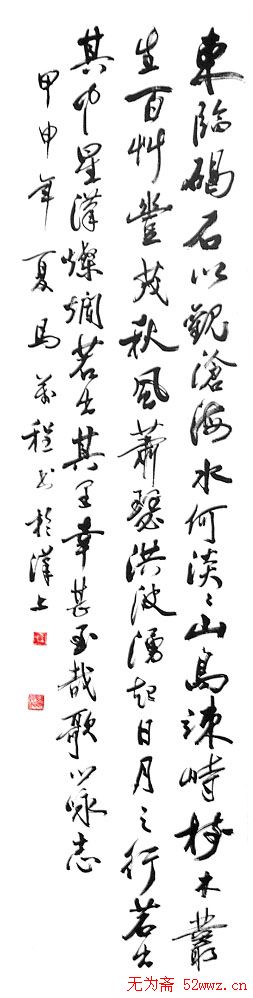 東臨碣石以觀滄海水何淡淡山島竦峙樹木叢
生百艸豐茂秋風蕭瑟洪波湧起日月之行若出
其中星漢燦爛若出其里幸甚至哉歌以咏志
甲申年夏馬萬程书於漢上
无为斋 52wwz.cn